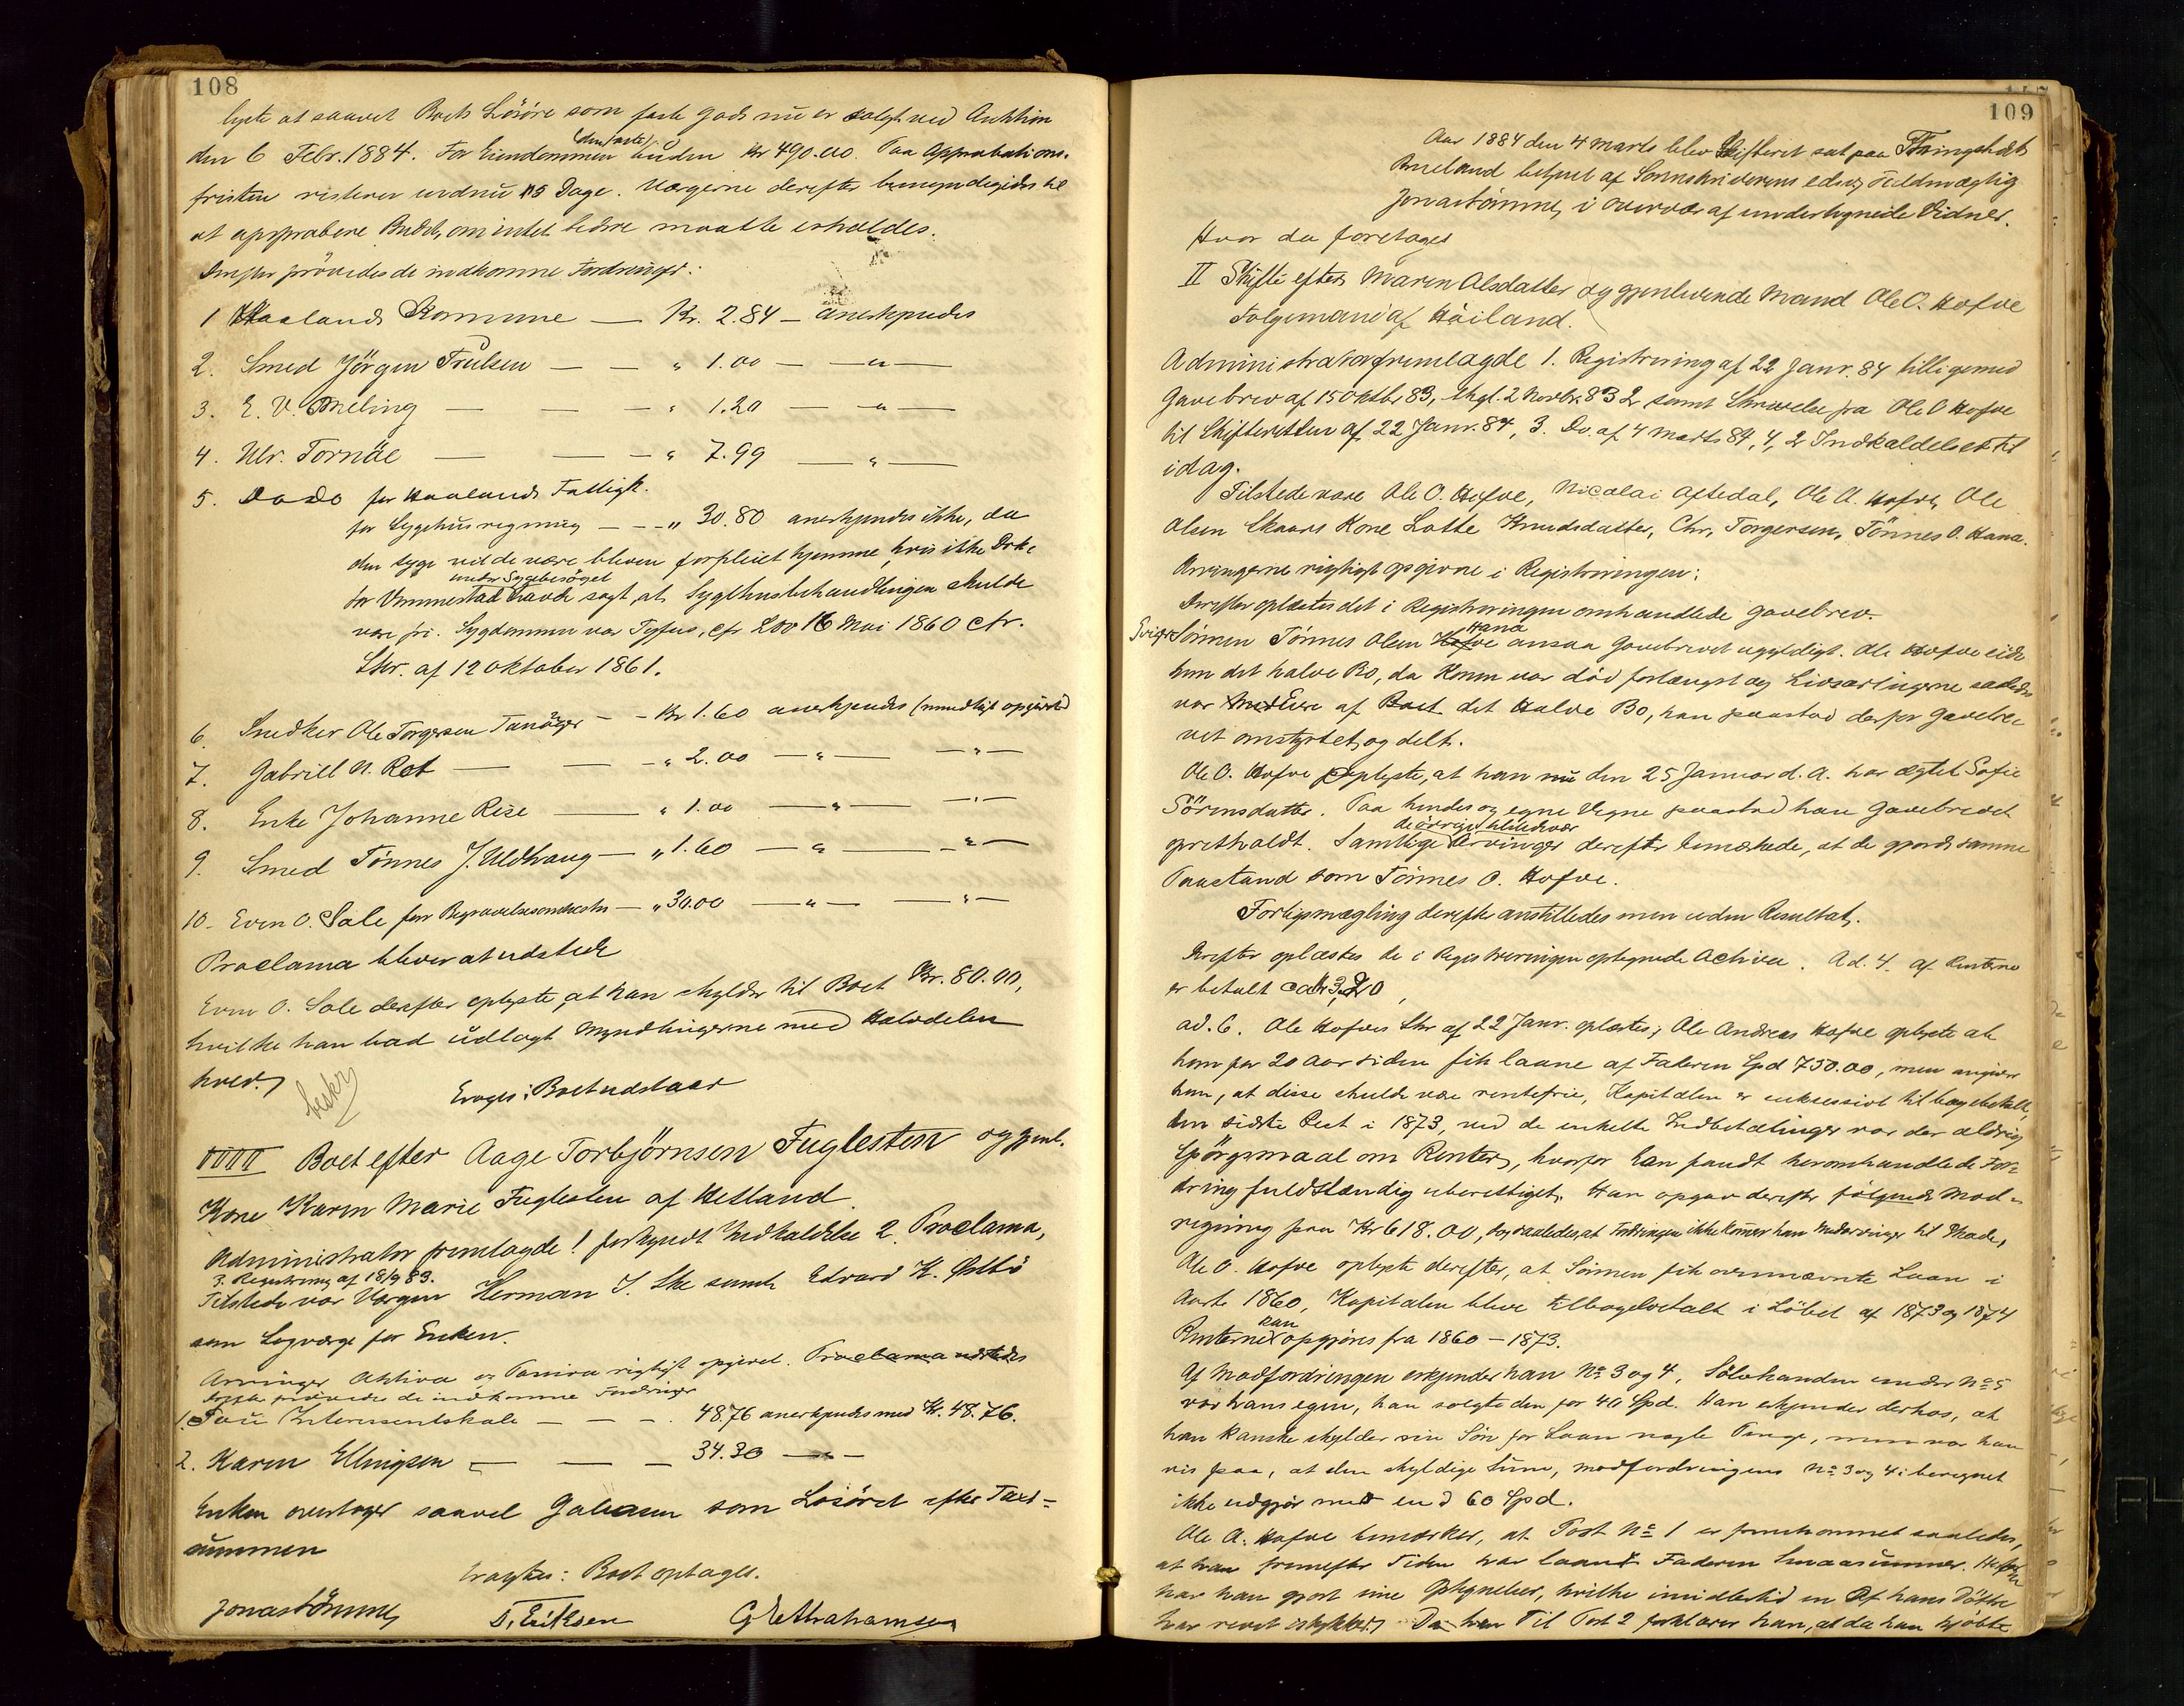 108
lyste at saavel Boets Lösöre som faste Gods nu er solgt ved Auktion
den 6 Febr. 1884. For Eiendommen (den faste) buden Kr 490.00. Paa Approbations-
fristen resterer endnu 15 Dage. Værgerne derefter bemyndigedes til
at approbere Budet, om intet bedre maatte erholdes.
Derefter prövedes de indkomne Fordringer:
1 Haalands Komune — Kr. 2.84 — anerkjendes
2. Smed Jörgen Trulsen — — " 1.00 — — " —
3. E. V. Meling — — — " 1.20 — " —
4. Ulr. Tornöe — — — " 7.99 — " —
5. Do Do for Haalands Fattigk.
for Sygehusregning — — " 30.80 anerkjendes ikke, da
den syge vilde være bleven forpleiet hjemme, hvis ikke Dok-
under Sygebesöget
tor Vemmestad havde sagt, at Sygehusbehandlingen skulde
være fri. Sygdommen var Tyfus, cfr Lov 16 Mai 1860 cfr.
Skr. af 12 Oktober 1861.
6. Snedker Ole Torgersen Tanager — — Kr 1.60 anerkjendes (mundtligt opgivet)
7. Gabriel N. Rot — — — " 2.00 — " — — " —
8. Enke Johanne Rise — " 1.00 — " — — " —
9. Smed Tönnes J. Uldhaug — " 1.60 — " — — " —
10. Even O. Sole for Begravelsesomkostn — " 30.00 — " — — " —
Proclama bliver at udstede
Even O. Sole derefter oplyste, at han skylder til Boet Kr. 80.00,
hvilke han bad udlagt Myndlingerne med Halvdelen
hver.
beskr
Eragtes: Boet udstaar
VIIII Boet efter Aage Torbjørnsen Fuglesten og gjenl.
Kone Karen Marie Fuglesten af Hetland.
Administrator fremlagde 1 forkyndt Indkaldelse 2. Proclama,
3. Registrering af 18/9 83.
Tilstede var Værgen Herman I. Ske samt Edvard K. Østbö
som Lagværge for Enken.
Arvinger Aktiva og Passiva rigtigt opgivet. Proclama udstedes
Derefter prövedes de indkomne Fordringer
1. Tou Interessentskab — — — 48.76 anerkjendes med Kr. 48.76.
2. Karen Ellingsen — — — 34.30 — " —
Enken overtager saavel Galeasen som Lösöret efter Taxt-
summen
Eragtes: Boet optages.
Jonas Tönnes D. Eriksen G Abrahamsen
109
Aar 1884 den 4 Marts blev Skifteret sat paa Thingstedet
Bueland betjent af Sorenskriverens edsv. Fuldmægtig
Jonas Tönnes, i Overvær af undertegnede Vidner.
Hvor da foretages
II Skifte efter Maren Olsdatter og gjenlevende Mand Ole O. Hofve
Folgemand af Höiland.
Administrator fremlagde 1. Registrering af 22 Janr. 84 tilligemed
Gavebrev af 15 Oktbr 83, thgl. 2 Novbr. 83 2 samt Skrivelse fra Ole O Hofve
til Skifteretten af 22 Janr. 84, 3. Do. af 4 Marts 84, 4, 2 Indkaldelser til
idag.
Tilstede vare Ole O. Hofve, Nicolai Aftedal, Ole A. Hofve, Ole
Olsen Skaars Kone Lotte Knudsdatter, Chr. Torgersen, Tönnes O. Hana.
Arvingerne rigtigt opgivne i Registreringen:
Derefter oplæstes det i Registreringen omhandlede Gavebrev.
Sönnen Tönnes Olsen Hofve Hana ansaa Gavebrevet ugyldigt. Ole Hofve eide
kun det halve Bo, da Konen var död forlængst og Livsarvingerne saaledes
var Eiere af Boet det Halve Bo, han paastod derfor Gavebre-
vet omstyrtet og delt.
Ole O. Hofve oplyste, at han nu den 25 Januar d. A. har ægtet Sofie
Sörensdatter. Paa hendes og egne Vegne paastod han Gavebrevet
de övrige tilstedevær
opretholdt. Samtlige Arvinger derefter bemærkede, at de gjorde samme
Paastand som Tönnes O. Hofve.
Forligsmægling derefter anstilledes men uden Resultat.
Derefter oplæstes de i Registreringen optegnede Activa. Ad. 4. af Renterne
er betalt
ad. 6. Ole Hofves Skr af 22 Janr. oplæstes; Ole Andreas Hofve oplyste at
han for 20 Aar siden fik laane af Faderen Spd 750.00, men angiver
han, at disse skulde være rentefrie, Kapitalen er successivt tilbagebetalt,
den sidste Rest i 1873, ved de enkelte Indbetalinger var der aldrig
Spörgsmaal om Renter, hvorfor han fandt heromhandlede For-
dring fuldstændig uberettiget. Han opgav derefter følgende Mod-
regning paa Kr 618.00, dog saaledes, at Fordringen ikke kommer hans Medarvinger til Skade,
Ole O. Hofve oplyste derefter, at Sönnen fik overnævnte Laan i
Aaret 1860, Kapitalen blev tilbagebetalt i Löbet af 1873 og 1874
kan
Renterne opgjöres fra 1860 – 1873.
Af Modfordringen erkjender han No 3 og 4, Sölvkanden under No 5
var hans egen, han solgte den for 40 Spd. Han erkjender derhos, at
han kanske skylder sin Sön for Laan nogle Penge, men var han
vis paa, at den skyldige Sum, Modfordringens No 3 og 4 iberegnet
ikke udgjör mere end 60 Spd.
Ole A. Hofve bemærker, at Post No 1 er fremkommet saaledes,
at han fremefter Tiden har laant Faderen Smaasummer. Herfor
har han gjort sine Optegnelser, hvilke imidlertid en af hans Döttre
har revet istykker. Til Post 2 forklarer han, at da han kjöbte